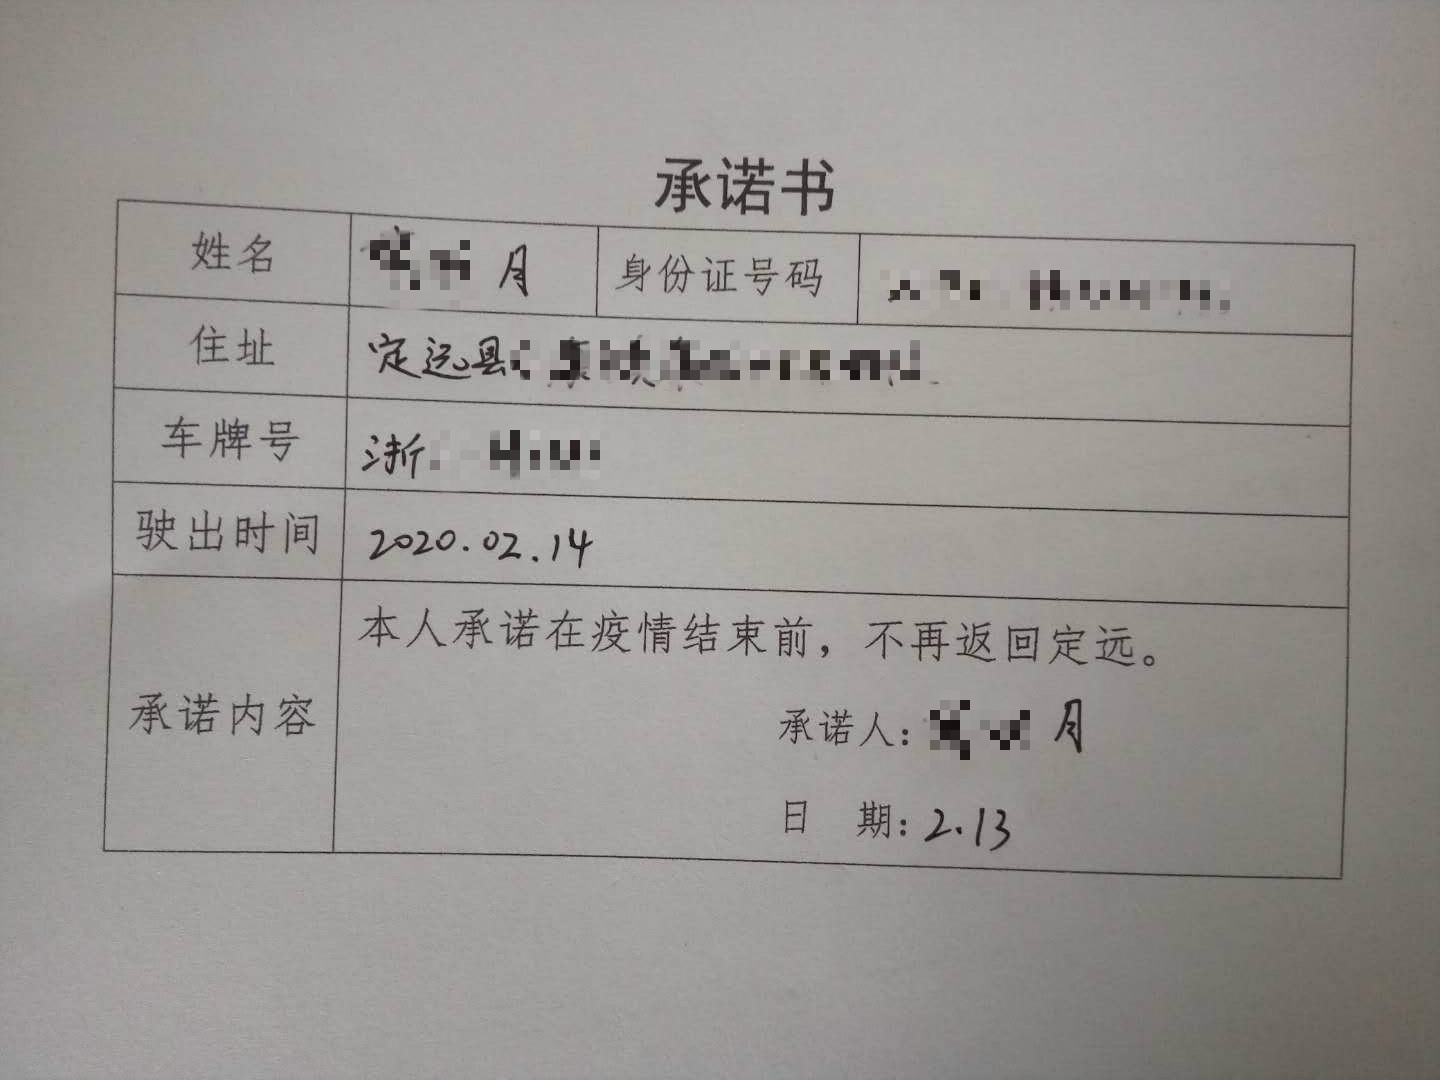 承诺书
姓名 月 身份证号码
住址 定远县
车牌号 浙
驶出时间 2020.02.14
本人承诺在疫情结束前，不再返回定远。
承诺内容
承诺人：月
日 期：2.13